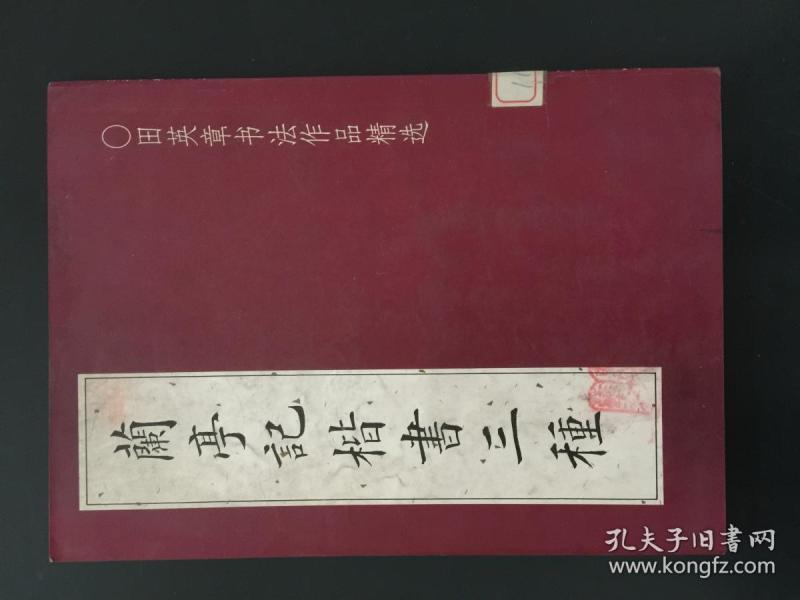 ○田英章书法作品精选
蘭亭記楷書三種
孔夫子旧书网
www.kongfz.com